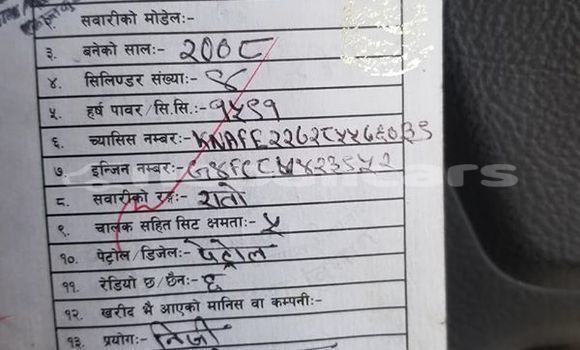 २. सवारीको मोडेल:-
३. बनेको साल:- २००८
४. सिलिण्डर संख्या:- ४
५. हर्ष पावर/सि.सि.:- १५९१
६. च्यासिस नम्बर:-
७. इन्जिन नम्बर:-
८. सवारीको रङ्ग:- रातो
९. चालक सहित सिट क्षमता:- ५
१०. पेट्रोल/डिजेल:- पेट्रोल
११. रेडियो छ/छैन:- छ
१२. खरीद भै आएको मानिस वा कम्पनी:-
१३. प्रयोग:- निजी